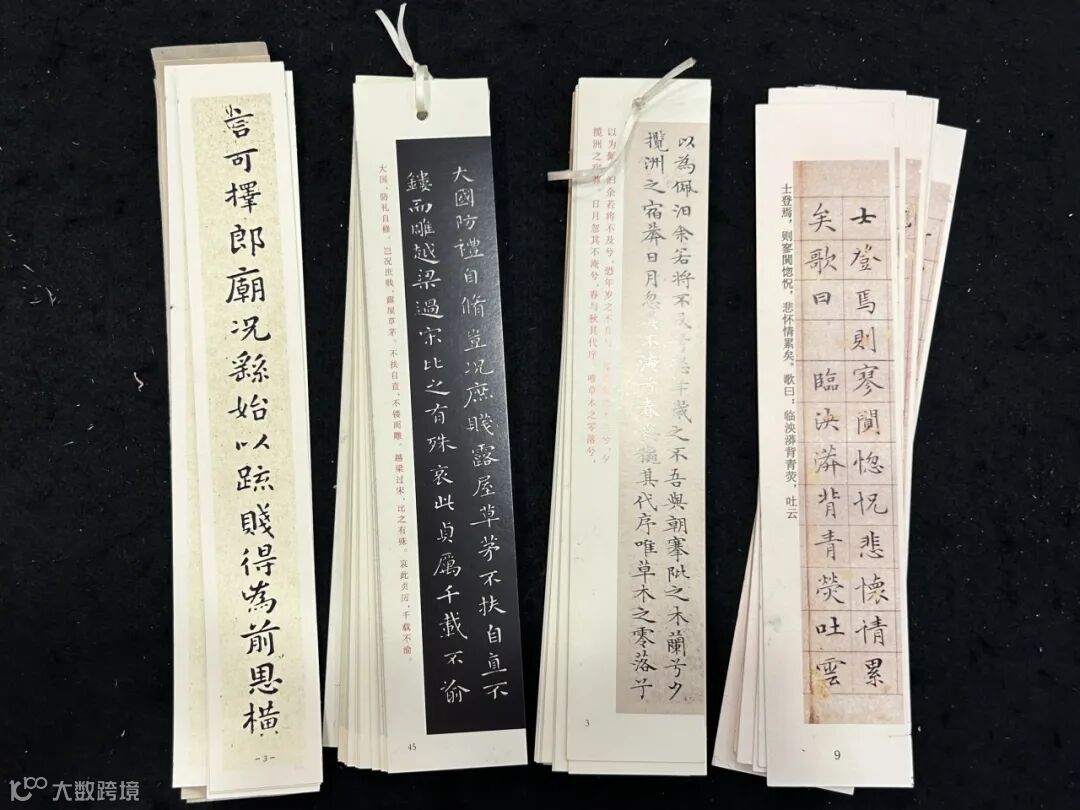 言可擇郎廟況繇始以疏賤得為前恩橫
-3-
大國防禮自脩豈況庶賤露屋草茅不扶自直不
鏤而雕越梁過宋比之有殊哀此貞厲千載不渝
大国，防礼自修。岂况庶贱，露屋草茅。不扶自直，不镂而雕。越梁过宋，比之有殊。哀此贞厉，千载不渝。
45
以為佩汩余若將不及兮恐年歲之不吾與朝搴阰之木蘭兮夕
攬洲之宿莽日月忽其不淹兮春與秋其代序唯草木之零落兮
以为佩。汩余若将不及兮，恐年岁之不吾与。夕
揽洲之宿莽。日月忽其不淹兮，春与秋其代序。唯草木之零落兮，
3
士登焉則寥闃惚怳悲懷情累
矣歌曰 臨泱漭背青熒吐雲
士登焉，则寥阒惚怳，悲怀情累矣。歌曰：临泱漭背青荧，吐云
9
大数跨境